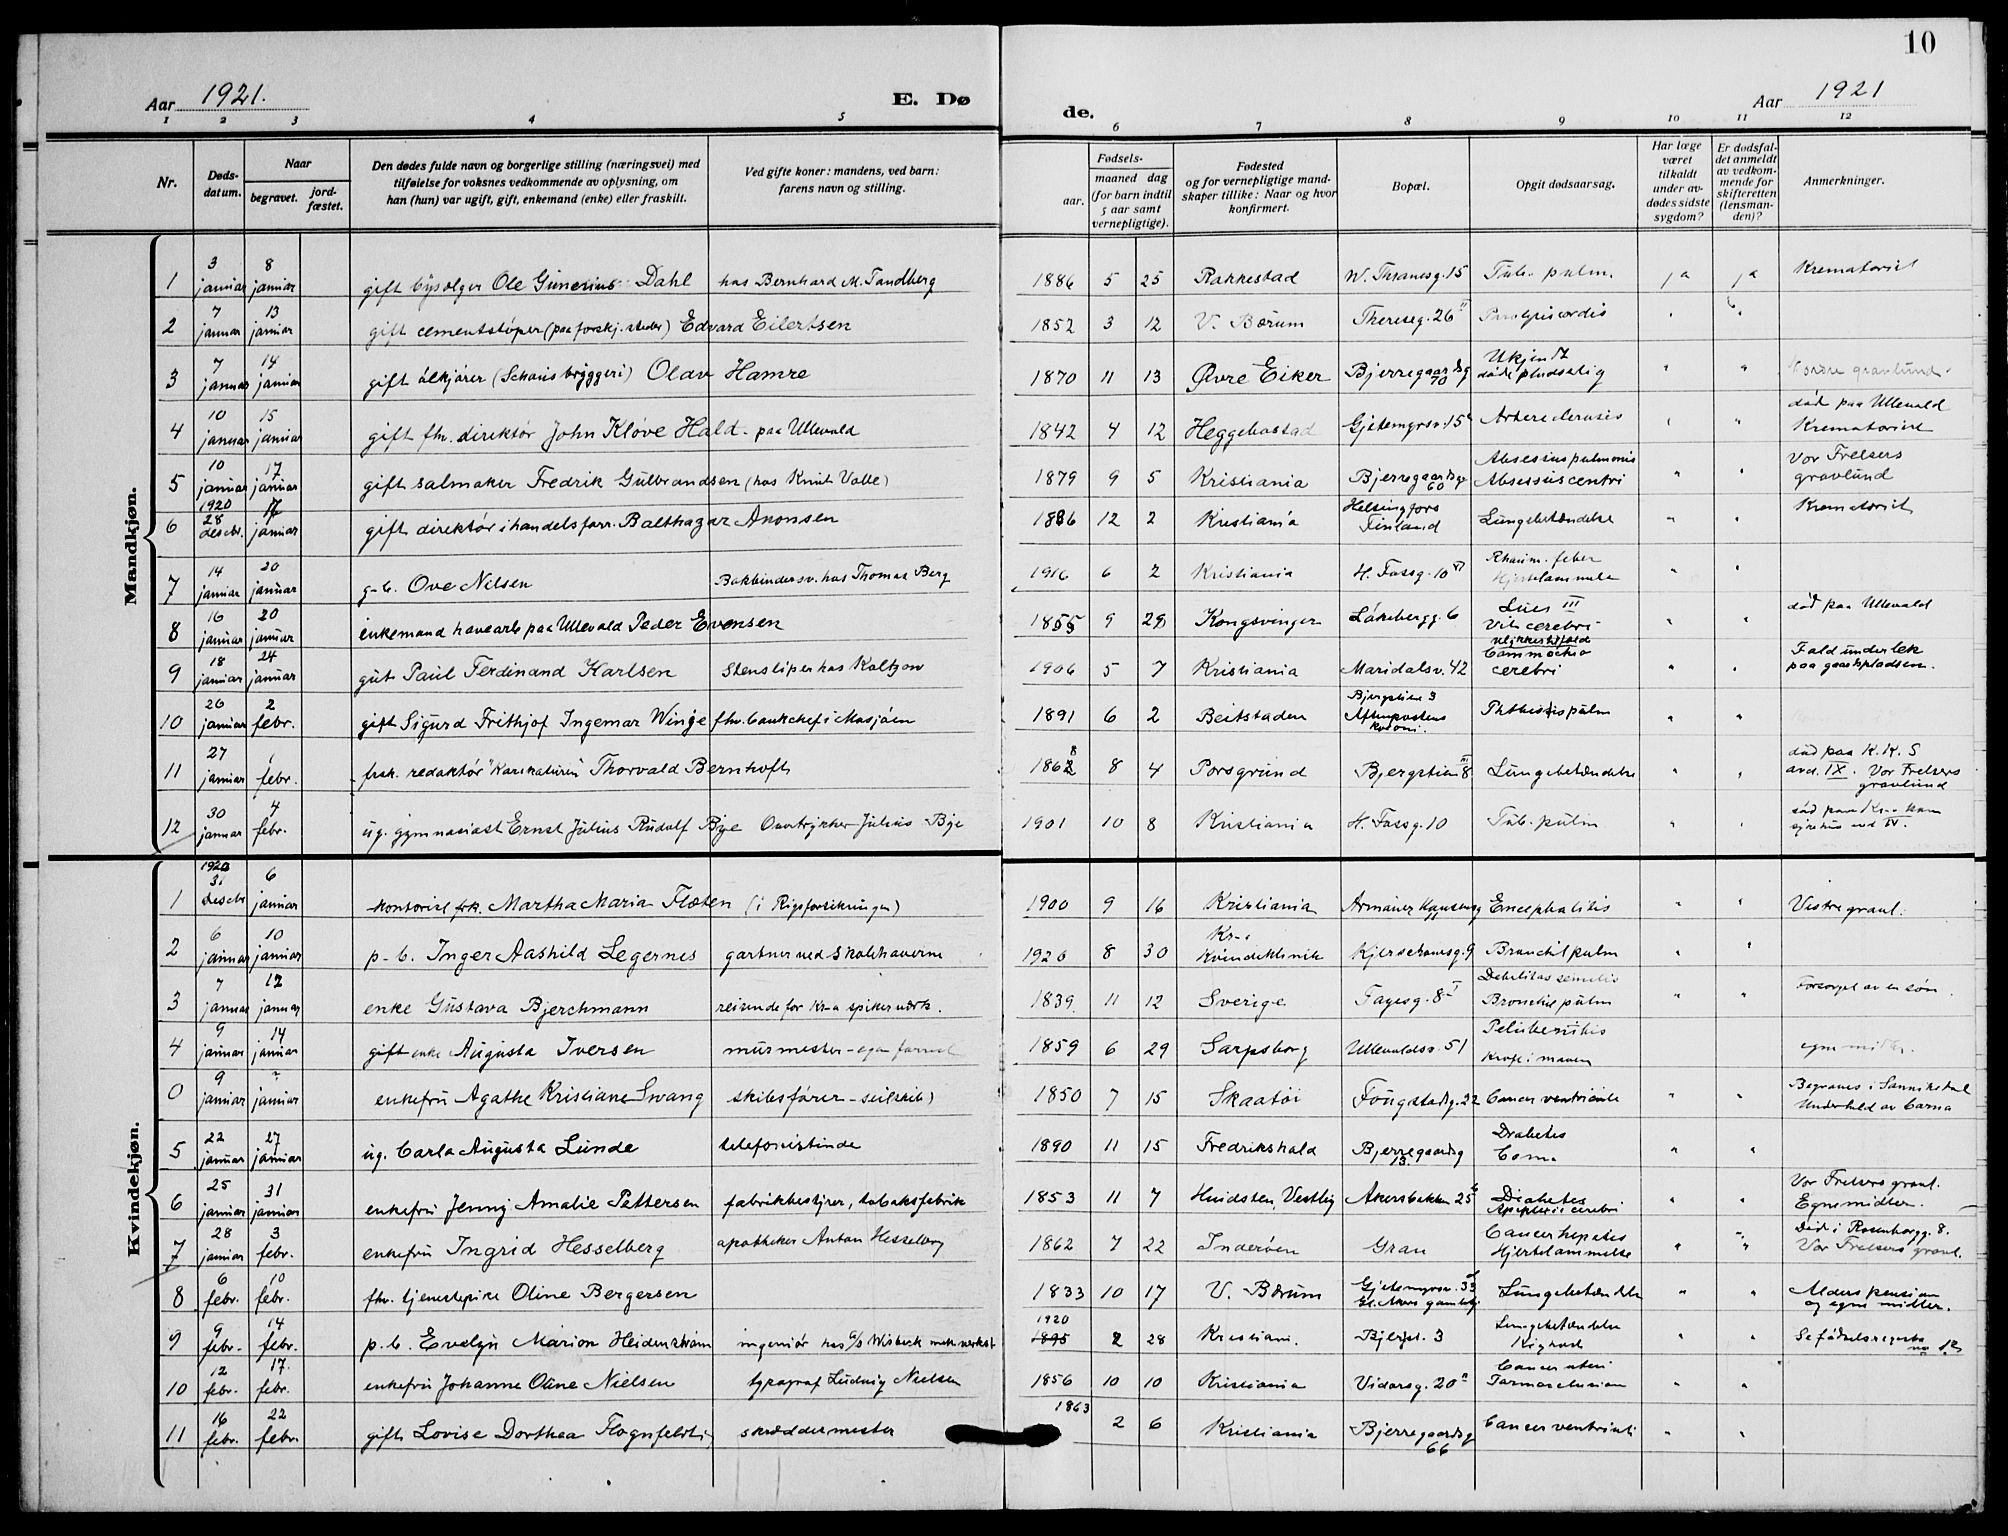 10
Aar 1921.
E. Dø
de.
Aar 1921
1 2 3 4 5 6 7 8 9 10 11 12
Nr.
Døds-
datum.
Naar
begravet.
jord-
fæstet.
Den dødes fulde navn og borgerlige stilling (næringsvei) med
tilføielse for voksnes vedkommende av oplysning, om
han (hun) var ugift, gift, enkemand (enke) eller fraskilt.
Ved gifte koner: mandens, ved barn:
farens navn og stilling.
Fødsels-
aar.
maaned dag
(for barn indtil
5 aar samt
vernepligtige).
Fødested
og for vernepligtige mand-
skaper tillike: Naar og hvor
konfirmert.
Bopæl.
Opgit dødsaarsag.
Har læge
været
tilkaldt
under av-
dødes sidste
sygdom?
Er dødsfal-
det anmeldt
av vedkom-
mende for
skifteretten
(lensman-
den)?
Anmerkninger.
Mandkjøn.
1 3 januar 8 januar gift Ole Gunerius Dahl hos Bernhard M. Tandberg 1886 5 25 Rakkestad W. Thranesg. 15 Tub. pulm. ja ja Krematoriet
2 7 januar 13 januar gift cementstøper (paa forskj. steder) Edvard Eilertsen 1852 3 12 V. Bærum Thereseg. 26 II " "
3 7 januar 14 januar gift ølkjører (Schous bryggeri) Olav Hamre 1870 11 13 Øvre Eiker Bjerregaardsg 70 Ukjendt døde pludselig " " Nordre gravlund.
4 10 januar 15 januar gift fhv. direktør John Kløve Hald - paa Ullevold 1842 4 12 Heggebostad Gjetemyrsv. 15 " " død paa Ullevold Krematoriet
5 10 januar 17 januar gift salmaker Fredrik Gulbrandsen (hos Knut Valle) 1879 9 5 Kristiania Bjerregaardsg 60 Absessus pulmonis Absessus centri " " Vor Frelsers gravlund
6 1920 28 desebr. 17 januar gift direktør i handelsforr. Balthazar Anonsen 1886 12 2 Kristiania Helsingfors Finland Lungebetændelse " " Krematoriet
7 14 januar 20 januar g-b. Ove Nilsen Bokbindersv. hos Thomas Berg 1916 6 2 Kristiania H. Fossg. 10 Rheum. feber Hjertelammelse " "
8 16 januar 20 januar enkemand havearb paa Ullevold Peder Evensen 1855 9 29 Kongsvinger Løkebergg. 6 Lues III Vit. cerebri " " død paa Ullevold
9 18 januar 24 januar gut Paul Ferdinand Karlsen Stensliper hos 1906 5 7 Kristiania Maridalsv. 42 Ulykkestilfæld Commotio cerebri " " Fald under lek paa gaardspladsen.
10 26 januar 2 febr. gift Sigurd Frithjof Ingemar Winge fhv. bankchef i Mosjøen 1891 6 2 Beitstaden Bjergstien 3 Aftenpostens koloni. Phthisis pulm " "
11 27 januar febr. frsk. redaktør "Karikaturen" Thorvald Bernhoft 1868 8 4 Porsgrund Bjergstien 8 III Lungebetændelse " " død paa K. K. S avd. IX. Vor Frelsers gravlund
12 30 januar 4 febr. ug. gymnasiast Ernst Julius Rudolf Bye Julius Bye 1901 10 8 Kristiania H. Fossg. 10 Tub. pulm " " død paa
Kvindekjøn.
1 1920 31 desebr 6 januar kontorist frk. Martha Maria Floten (i Rigsforsikringen) 1900 9 16 Kristiania Encephalitis " " Vestre gravl.
2 6 januar 10 januar p-b. Inger Aashild Legernes gartner ved Skolehaverne 1920 8 30 Kr-a Kvindeklinik Kjerschowsg. 9 " "
3 7 januar 12 januar enke Gustava Bjerchmann reisende for Kr-a spikerverk. 1839 11 12 Sverige Fayesg. 8 I Debilitas senilis " " Forsørget av en søn.
4 9 januar 14 januar gift enke Augusta Iversen murmester - 1859 6 29 Sarpsborg Ullevoldsv. 51 Kræft i maven egne midler.
0 9 januar ? januar enkefru Agathe Kristiane Swang skibsfører - seilskib) 1850 7 15 Skaatøi Fougstadsg. 22 Cancer ventricule " " Begraves i Sannikedal Underhold av barna
5 22 januar 27 januar ug. Carla Augusta Lunde telefonistinde 1890 11 15 Fredrikshald Bjerregaardsg 13 Diabetes Coma " "
6 25 januar 31 januar enkefru Jenny Amalie Pettersen fabrikbestyrer, tobaksfabrik 1853 11 7 Akersbakken 25 Diabetes Apoplexis cerebri " " Vor Frelsers gravl. Egne midler.
7 28 januar 3 febr. enkefru Ingrid Hesselberg apotheker Anton Hesselberg 1862 7 22 Inderøen Gran Cancer hepatis Hjertelammelse " " Død i Rosenborgg. 8. Vor Frelsers gravl.
8 6 febr. 10 febr. fhv. tjenestepike Oline Bergersen 1833 10 17 V. Bærum Gjetemyrsv. 33 Gl. Akers gamlehj Lungebetændelse " " Alderspension og egne midler.
9 9 febr. 14 febr. p.b. Evelyn Marion Heidenstrøm ingeniør 1920 1895 2 28 Kristiani. Bjergst. 3 Lungebetændelse Kighoste " " Se fødselsregister no 12
10 12 febr. 17. febr. enkefru Johanne Oline Nielsen typograf Ludvig Nielsen 1856 10 10 Kristiania Vidarsg. 20 Cancer uteri " "
11 16 febr. 22 febr. gift Lovise Dorthea skræddermester 1863 2 6 Kristiania Bjerregaardsg 66 Cancer ventriculi " "